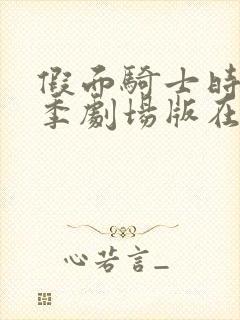 假面騎士時
季劇場版在
心若言_